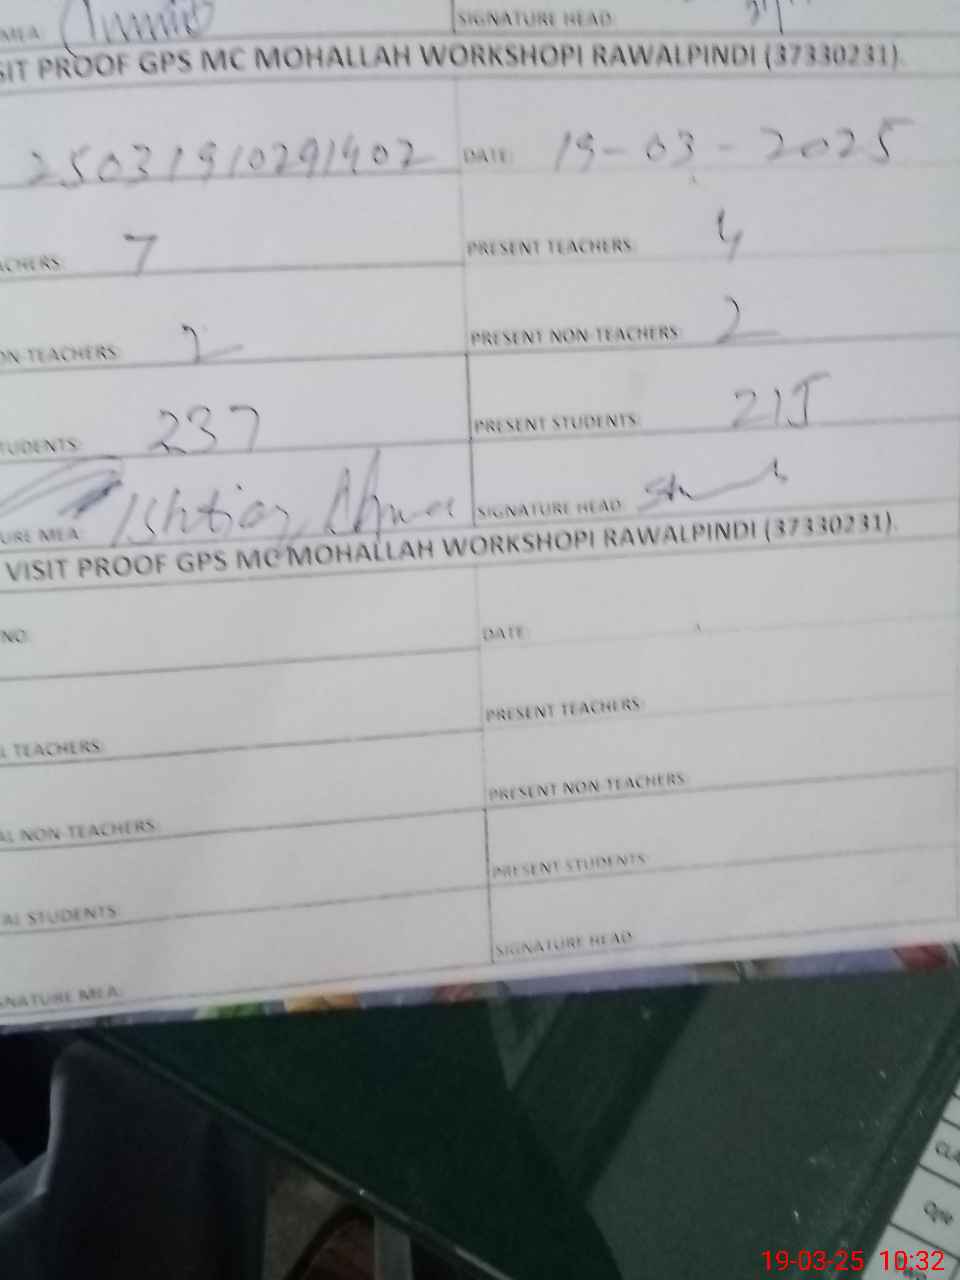 MEA: SIGNATURE HEAD:
SIT PROOF GPS MC MOHALLAH WORKSHOPI RAWALPINDI (37330231).
25031910291402 DATE: 19-03-2025
ACHERS: 7 PRESENT TEACHERS: 4
ON-TEACHERS: 2 PRESENT NON-TEACHERS: 2
TUDENTS: 237 PRESENT STUDENTS: 215
URE MEA: Ishtiaq Ahmed SIGNATURE HEAD:
VISIT PROOF GPS MC MOHALLAH WORKSHOPI RAWALPINDI (37330231).
NO: DATE:
L TEACHERS: PRESENT TEACHERS:
AL NON-TEACHERS: PRESENT NON-TEACHERS:
AL STUDENTS: PRESENT STUDENTS:
GNATURE MEA: SIGNATURE HEAD:
CLA
Ope
19-03-25 10:32